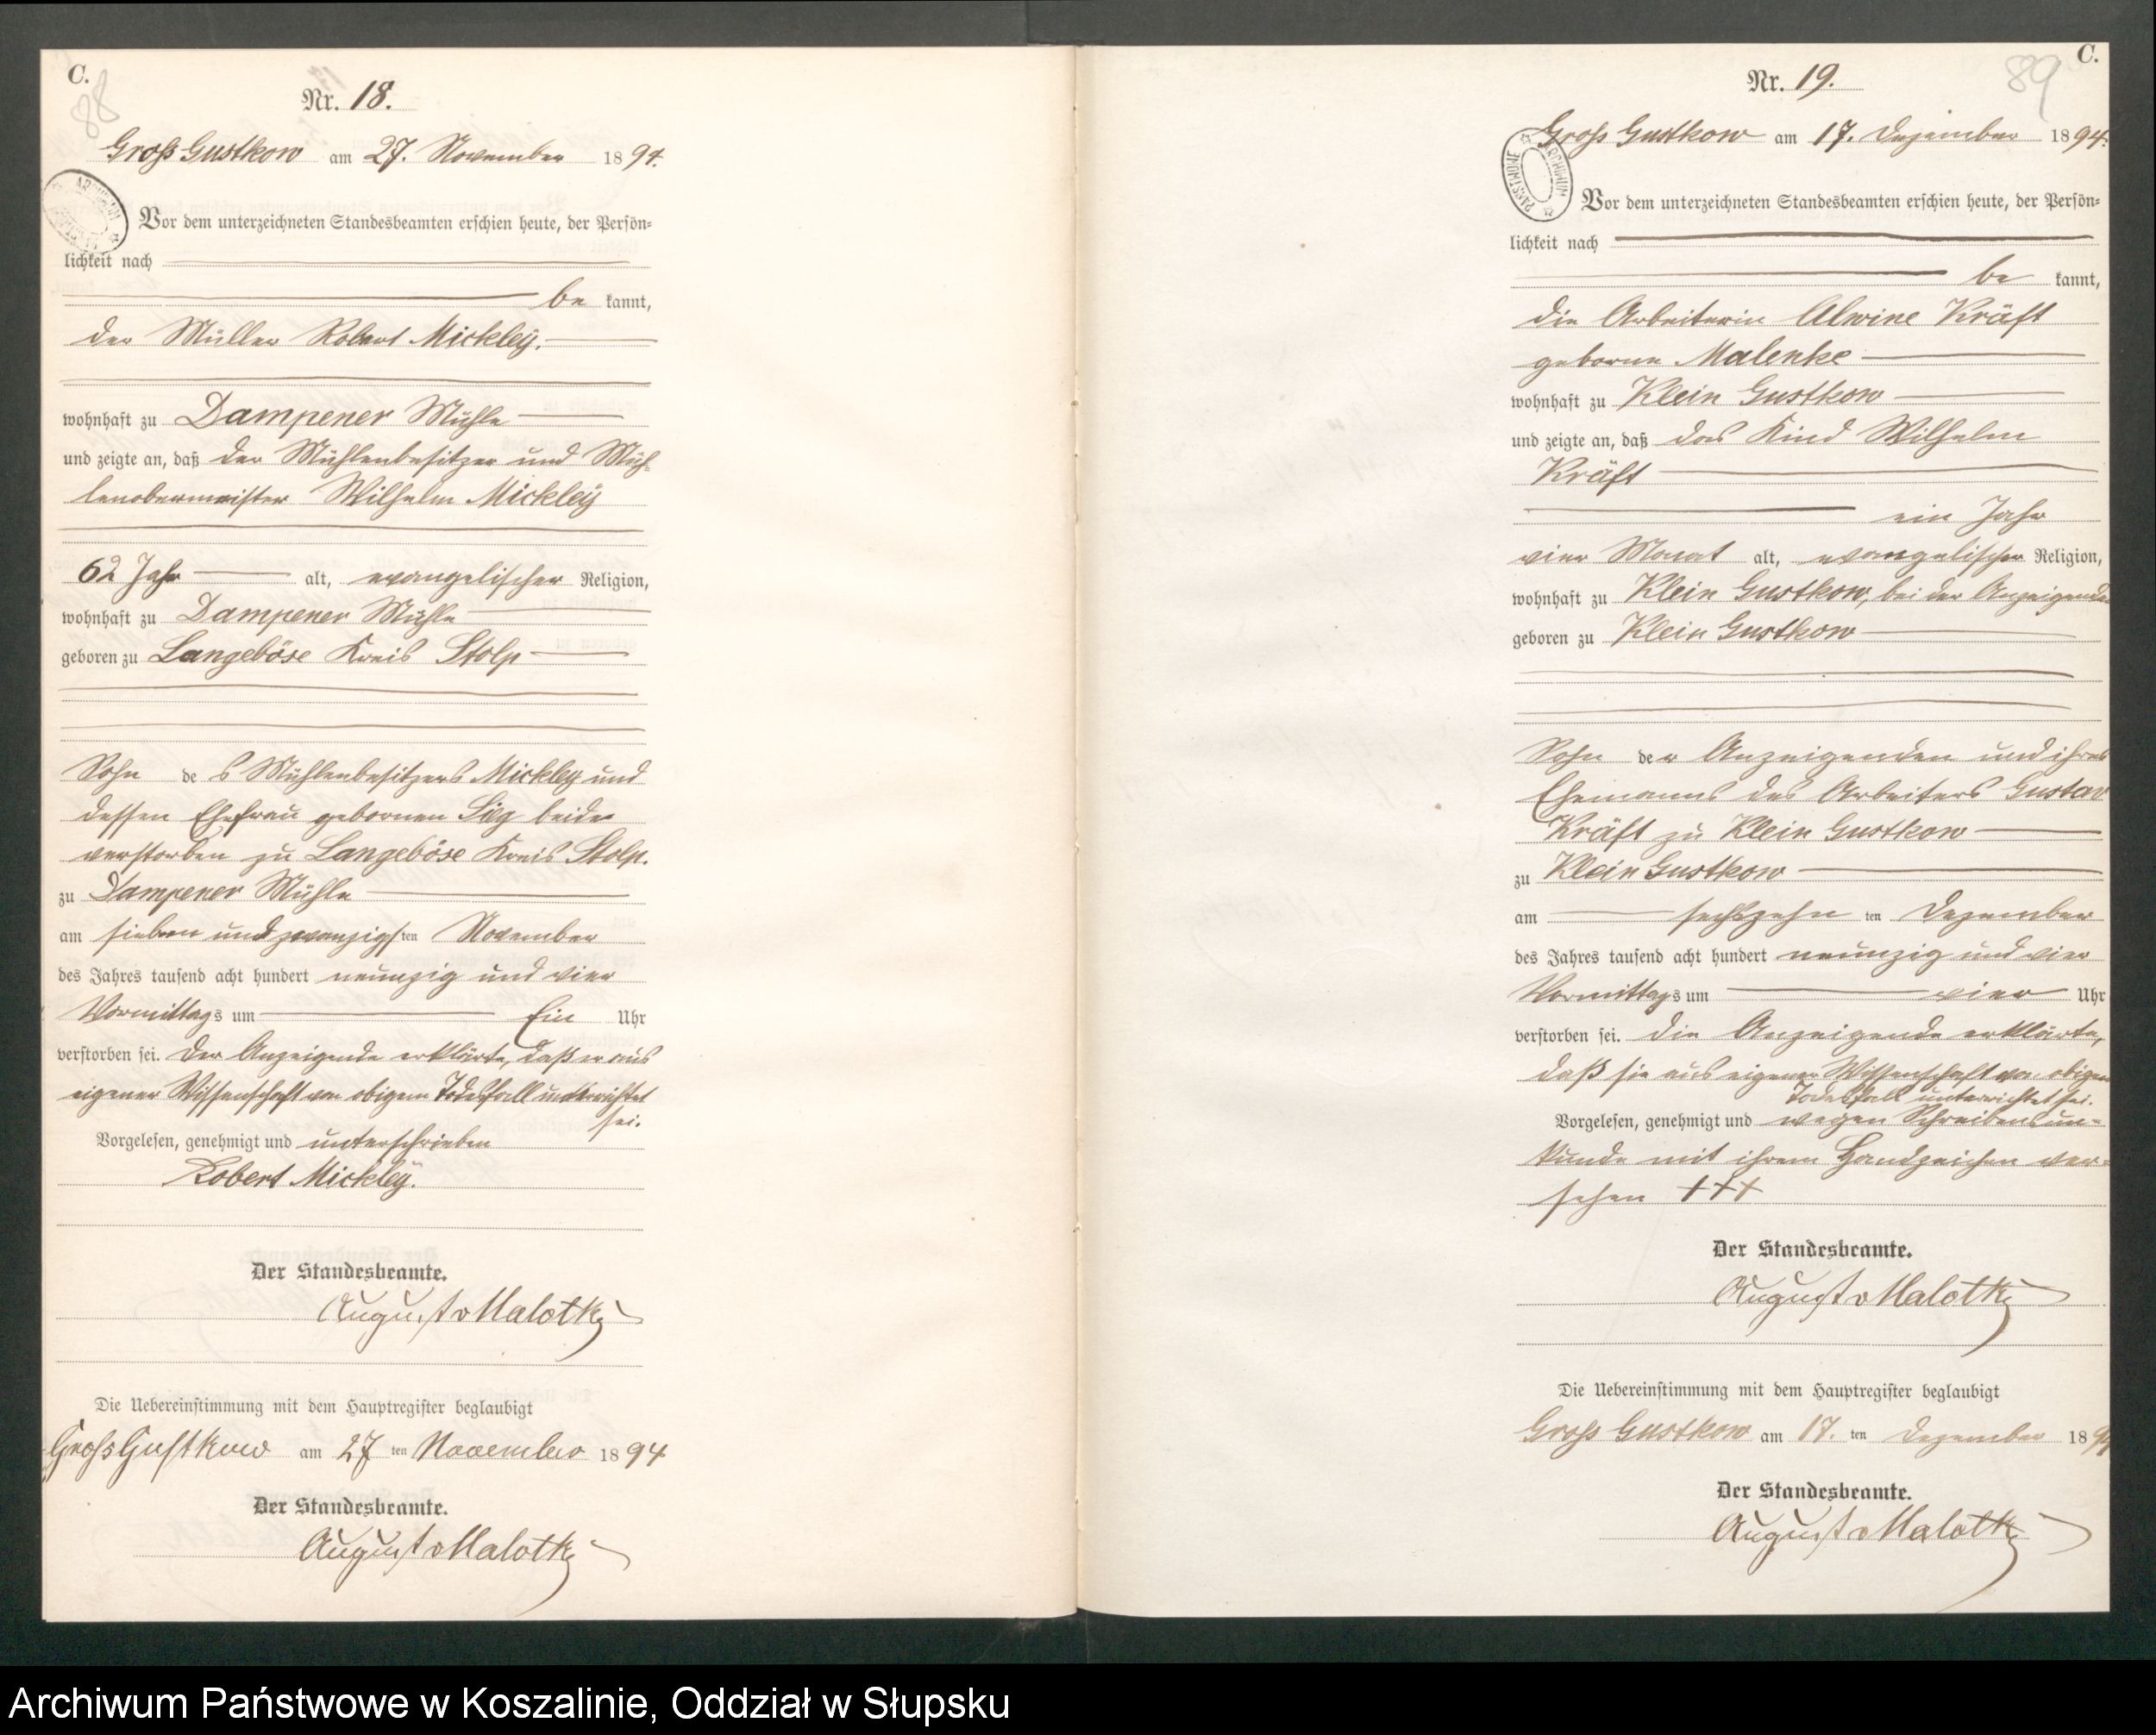 C.
88
Nr. 18.
Groß Gustkow am 27. November 1894.
Vor dem unterzeichneten Standesbeamten erschien heute, der Persön-
lichkeit nach
be kannt,
der Müller Robert Mickley.
wohnhaft zu Dampener Mühle
und zeigte an, daß der Mühlenbesitzer und Müh-
lenobermeister Wilhelm Mickley
62 Jahr alt, evangelischer Religion,
wohnhaft zu Dampener Mühle
geboren zu Langeböse Kreis Stolp
Sohn des Mühlenbesitzers Mickley und
dessen Ehefrau gebornen Sieg beide
verstorben zu Langeböse Kreis Stolp.
zu Dampener Mühle
am sieben und zwanzigsten November
des Jahres tausend acht hundert neunzig und vier
Vormittags um Ein Uhr
verstorben sei. Der Anzeigende erklärte, daß er aus
eigener Wissenschaft von obigem Todesfall unterrichtet
sei.
Vorgelesen, genehmigt und unterschrieben
Robert Mickley.
Der Standesbeamte.
August v Malotky
Die Uebereinstimmung mit dem Hauptregister beglaubigt
Groß Gustkow am 27 ten November 1894
Der Standesbeamte.
August v Malotky
C.
89
Nr. 19.
Groß Gustkow am 17. Dezember 1894.
ARCHIWUM PAŃSTWOWE
Vor dem unterzeichneten Standesbeamten erschien heute, der Persön-
lichkeit nach
be kannt,
die Arbeiterin Alwine Kräft
geborne Malenke
wohnhaft zu Klein Gustkow
und zeigte an, daß das Kind Wilhelm
Kräft
ein Jahr
vier Monat alt, evangelischer Religion,
wohnhaft zu Klein Gustkow, bei der Anzeigenden
geboren zu Klein Gustkow
Sohn der Anzeigenden und ihres
Ehemanns des Arbeiters Gustav
Kräft zu Klein Gustkow
zu Klein Gustkow
am sechszehn ten Dezember
des Jahres tausend acht hundert neunzig und vier
Vormittags um vier Uhr
verstorben sei. Die Anzeigende erklärte,
daß sie aus eigener Wissenschaft von obigem
Todesfall unterrichtet sei.
Vorgelesen, genehmigt und wegen Schreibensun-
kunde mit ihrem Handzeichen ver-
sehen +++
Der Standesbeamte.
August v Malotky
Die Uebereinstimmung mit dem Hauptregister beglaubigt
Groß Gustkow am 17. ten Dezember 1894
Der Standesbeamte.
August v Malotky
Archiwum Państwowe w Koszalinie, Oddział w Słupsku